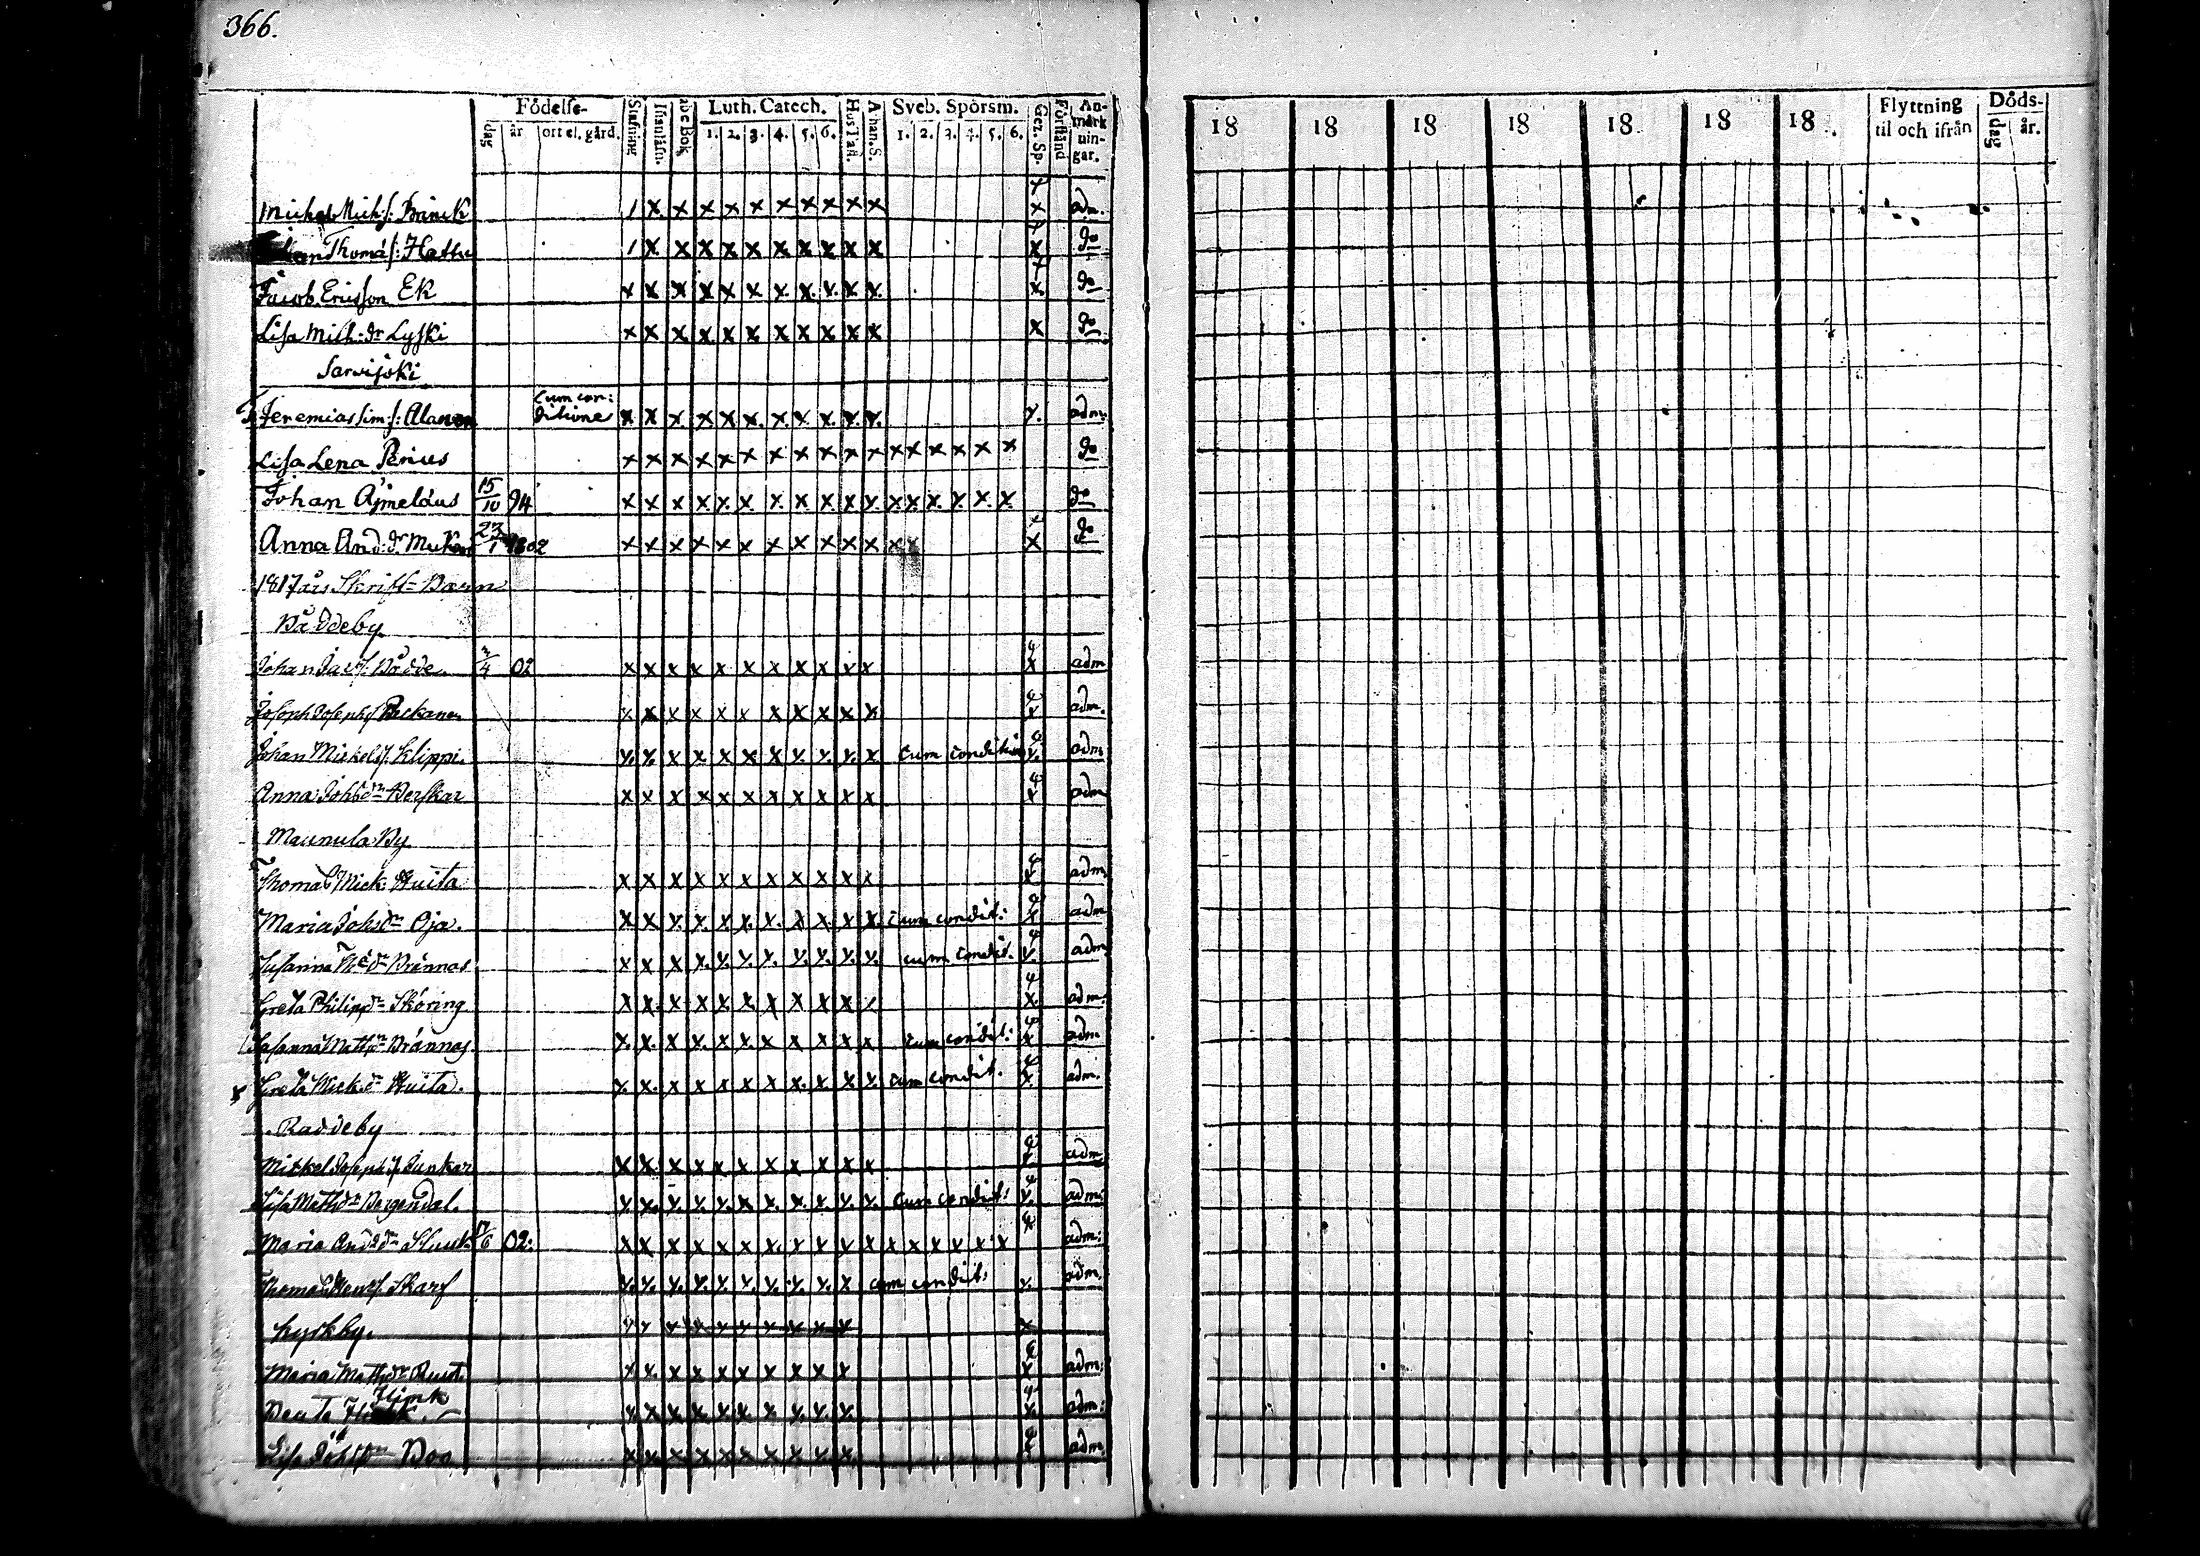 366.
Födelse- Luth. Catech. Sveb. Spörsm. An-
dag år ort el. gård. Stafning abc Bok 1. 2. 3. 4. 5. 6. Hus Tafl. Athan. S. 1. 2. 3. 4. 5. 6. Gez. Sp. Förstånd märk nin- gar.
18 18 18 18 18 18 18 Flyttning til och ifrån Döds- dag år.
Michel Mich.s: Brinck / x x x x x x x x x x x adm.
Thomas s: Hattu / x x x x x x x x x x x do
Jacob Ericsson Ek x x x x x x x x x x x x do
Lisa Mich:dr Lyski x x x x x x x x x x x x do
Sarvijoki
Jeremias Sim:s: Alanen cum con: ditione x x x x x x x x x x x x adm:
Lisa Lena Penius x x x x x x x x x x x x x x x x x do
Johan Ajmeläus 15/10 94 x x x x x x x x x x x x x x x x x do
Anna And:dr Mickon 23/1 1802 x x x x x x x x x x x x do
1817 års Skrift-Barn
Båddeby
Johan Jac:s: Bådde 3/4 02 x x x x x x x x x x x x adm
Joseph Josephs Backanen x x x x x x x x x x x x adm.
Johan Mickels: Klippi. x x x x x x x x x x x cum condition x adm
Anna Johsdr x x x x x x x x x x x x adm
Maunula By
Thomas Mick: Huita x x x x x x x x x x x x adm
Maria Johsdr Oja. x x x x x x x x x x x cum condit: x adm
Susanna dr Brännas x x x x x x x x x x x cum condit. x adm
Greta Philipdr Sköring x x x x x x x x x x / x adm.
Susanna Mathsdr Brännas x x x x x x x x x x x cum condit: x adm
x Greta Mick:dr Huita. x x x x x x x x x x x cum condit. x adm.
Raddeby
Mickel Josephs: Junkar x x x x x x x x x x x x adm
Lisa Mathsdr Bergendal. x x x x x x x x x x x cum condit: x adm:
Maria Andsdr 6 02: x x x x x x x x x x x x x x x x x adm:
Thomas Henr:s: Skarf x x x x x x x x x x cum condit: x adm.
Kyrkby. x x x x x x x x x x x
Maria Mathsdr x x x x x x x x x x x adm:
Flink
Beata x x x x x x x x x x x adm:
Lisa Johsdr Boo x x x x x x x x x x x adm